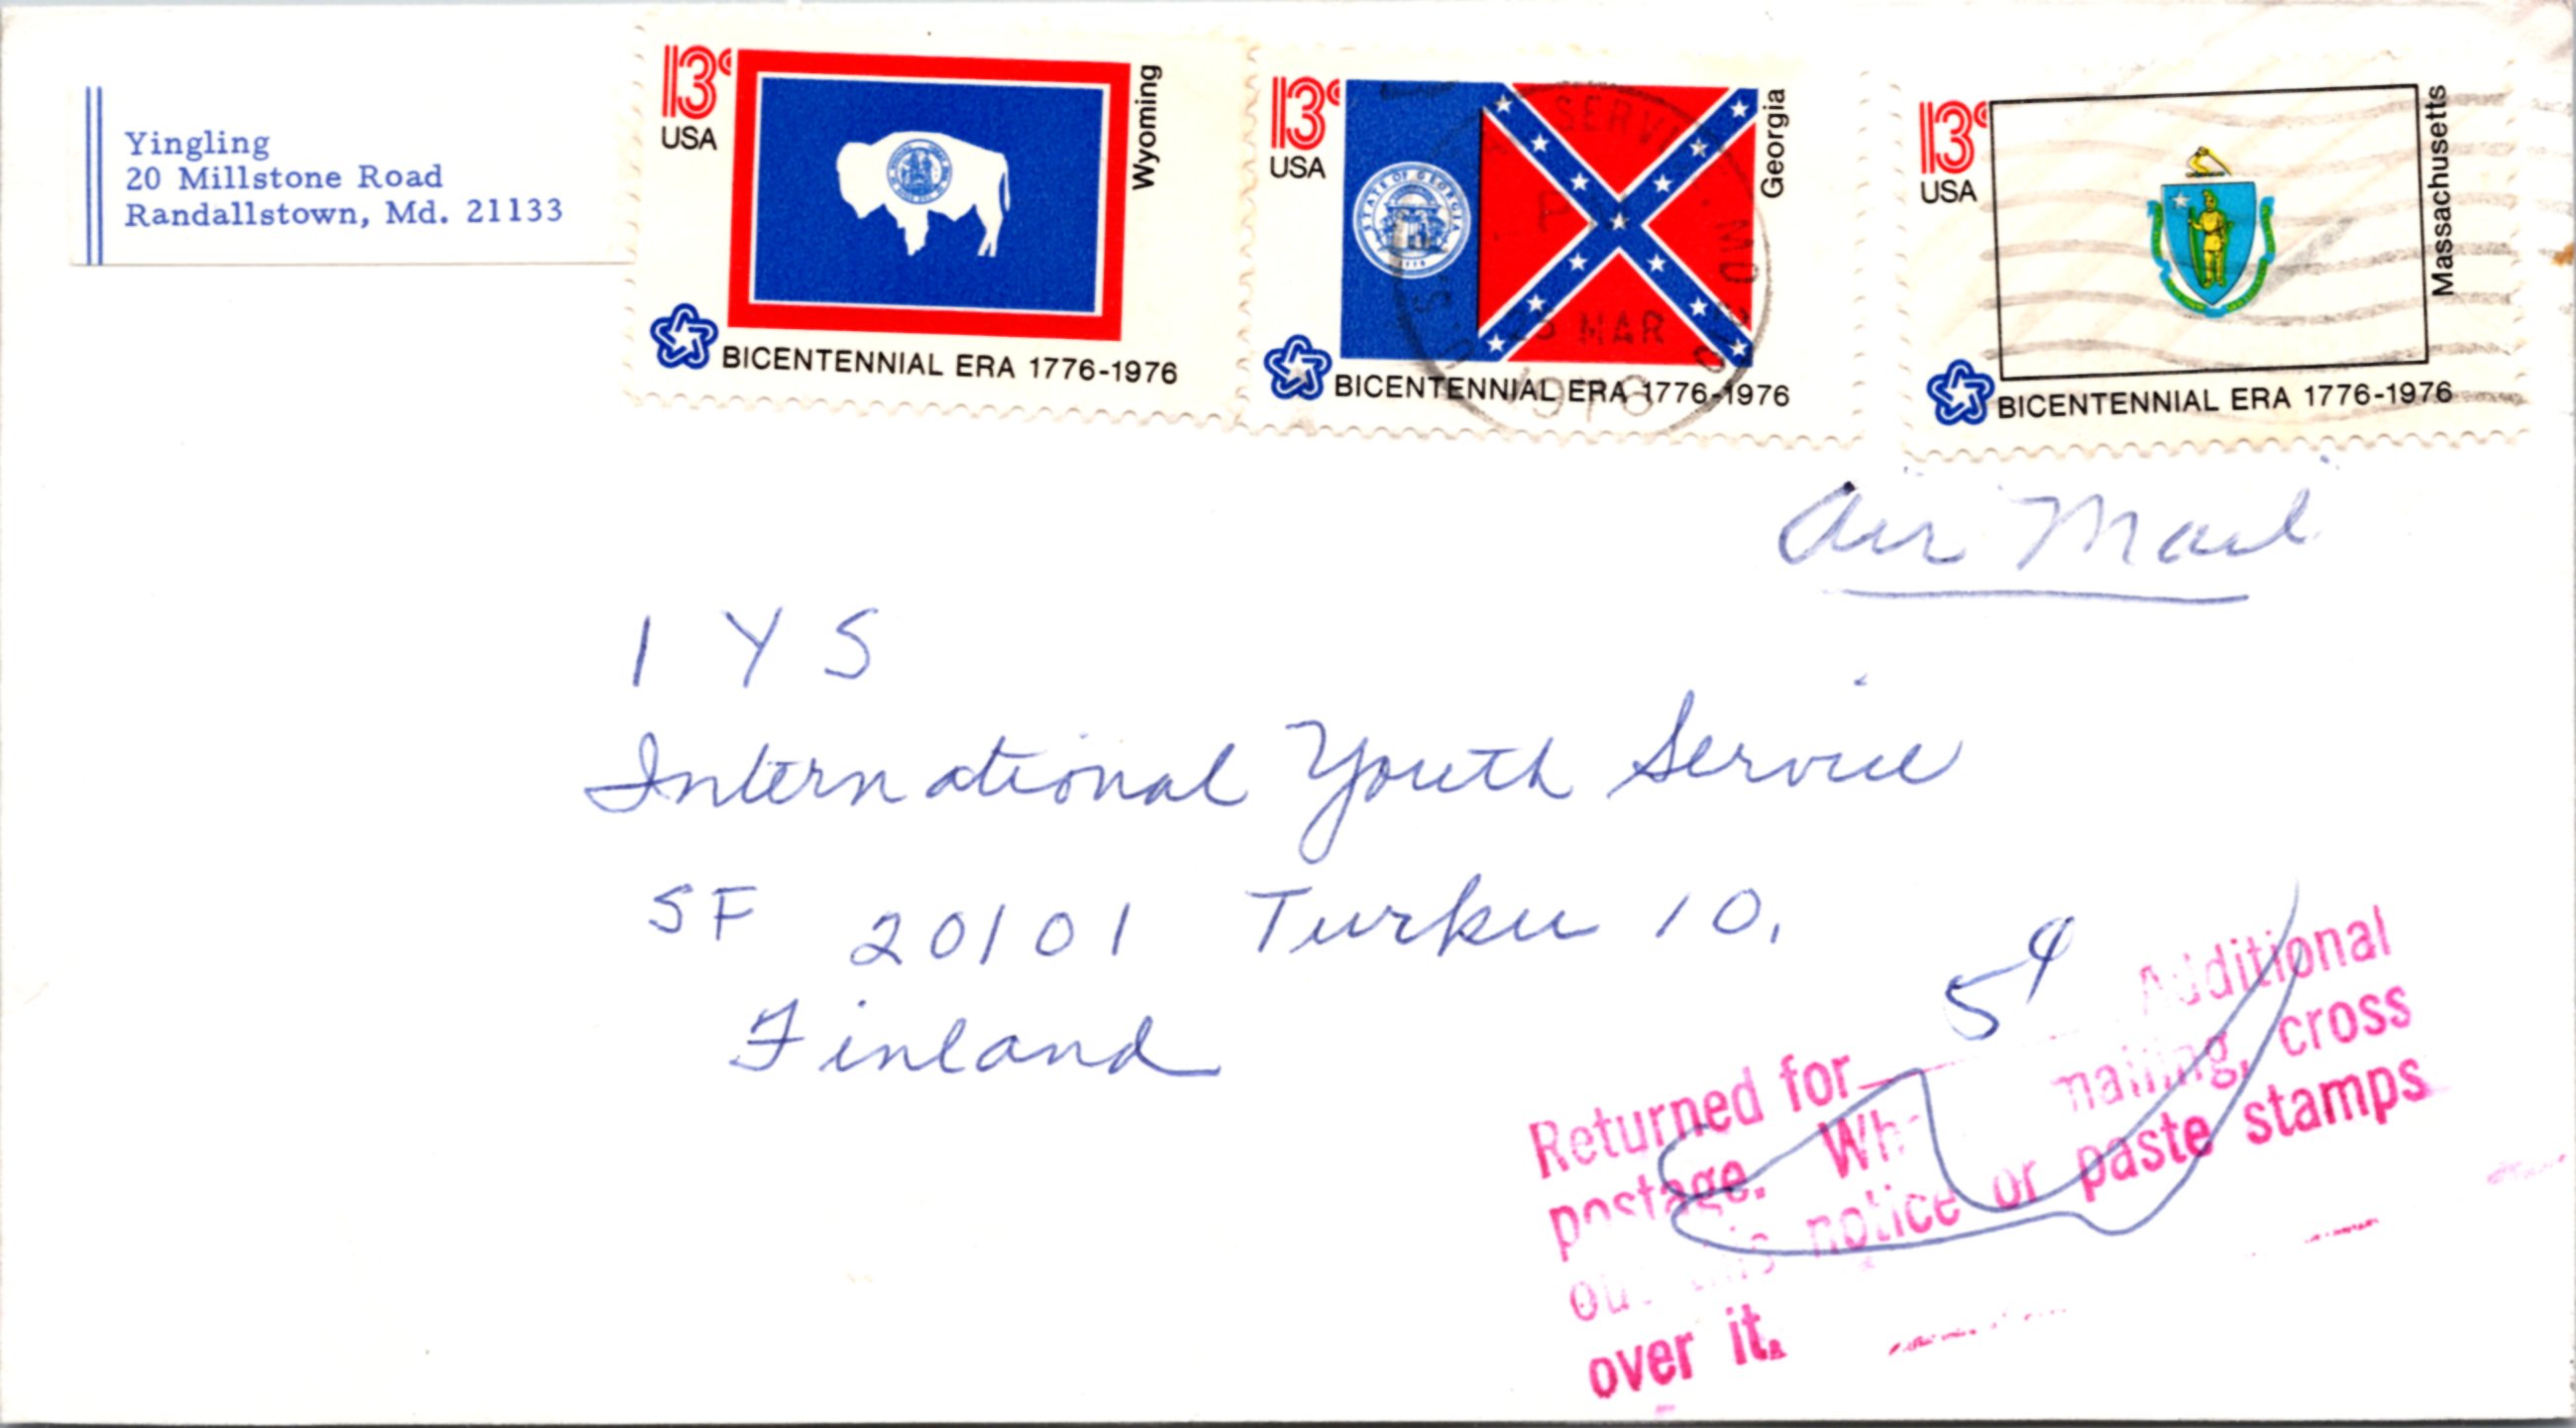 Yingling
20 Millstone Road
Randallstown, Md. 21133
13c
USA
Wyoming
BICENTENNIAL ERA 1776-1976
13c
USA
STATE OF GEORGIA
1776
Georgia
BICENTENNIAL ERA 1776-1976
13c
USA
Massachusetts
BICENTENNIAL ERA 1776-1976
PM
MAR
1978
Air Mail
I Y S
International Youth Service
SF 20101 Turku 10,
Finland
5¢
Returned for Additional
postage. mailing, cross
out this notice or paste stamps
over it.